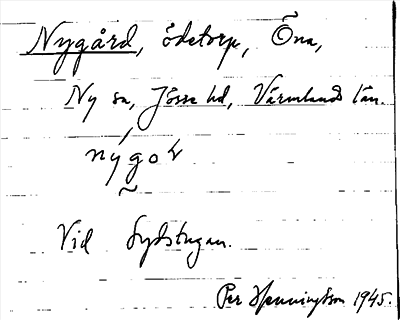 Nygård, ödetorp, Öna,
Ny sn, Jösse hd, Värmlands län.
nýgo
Vid Sydstugan.
Per Henningtson 1945.